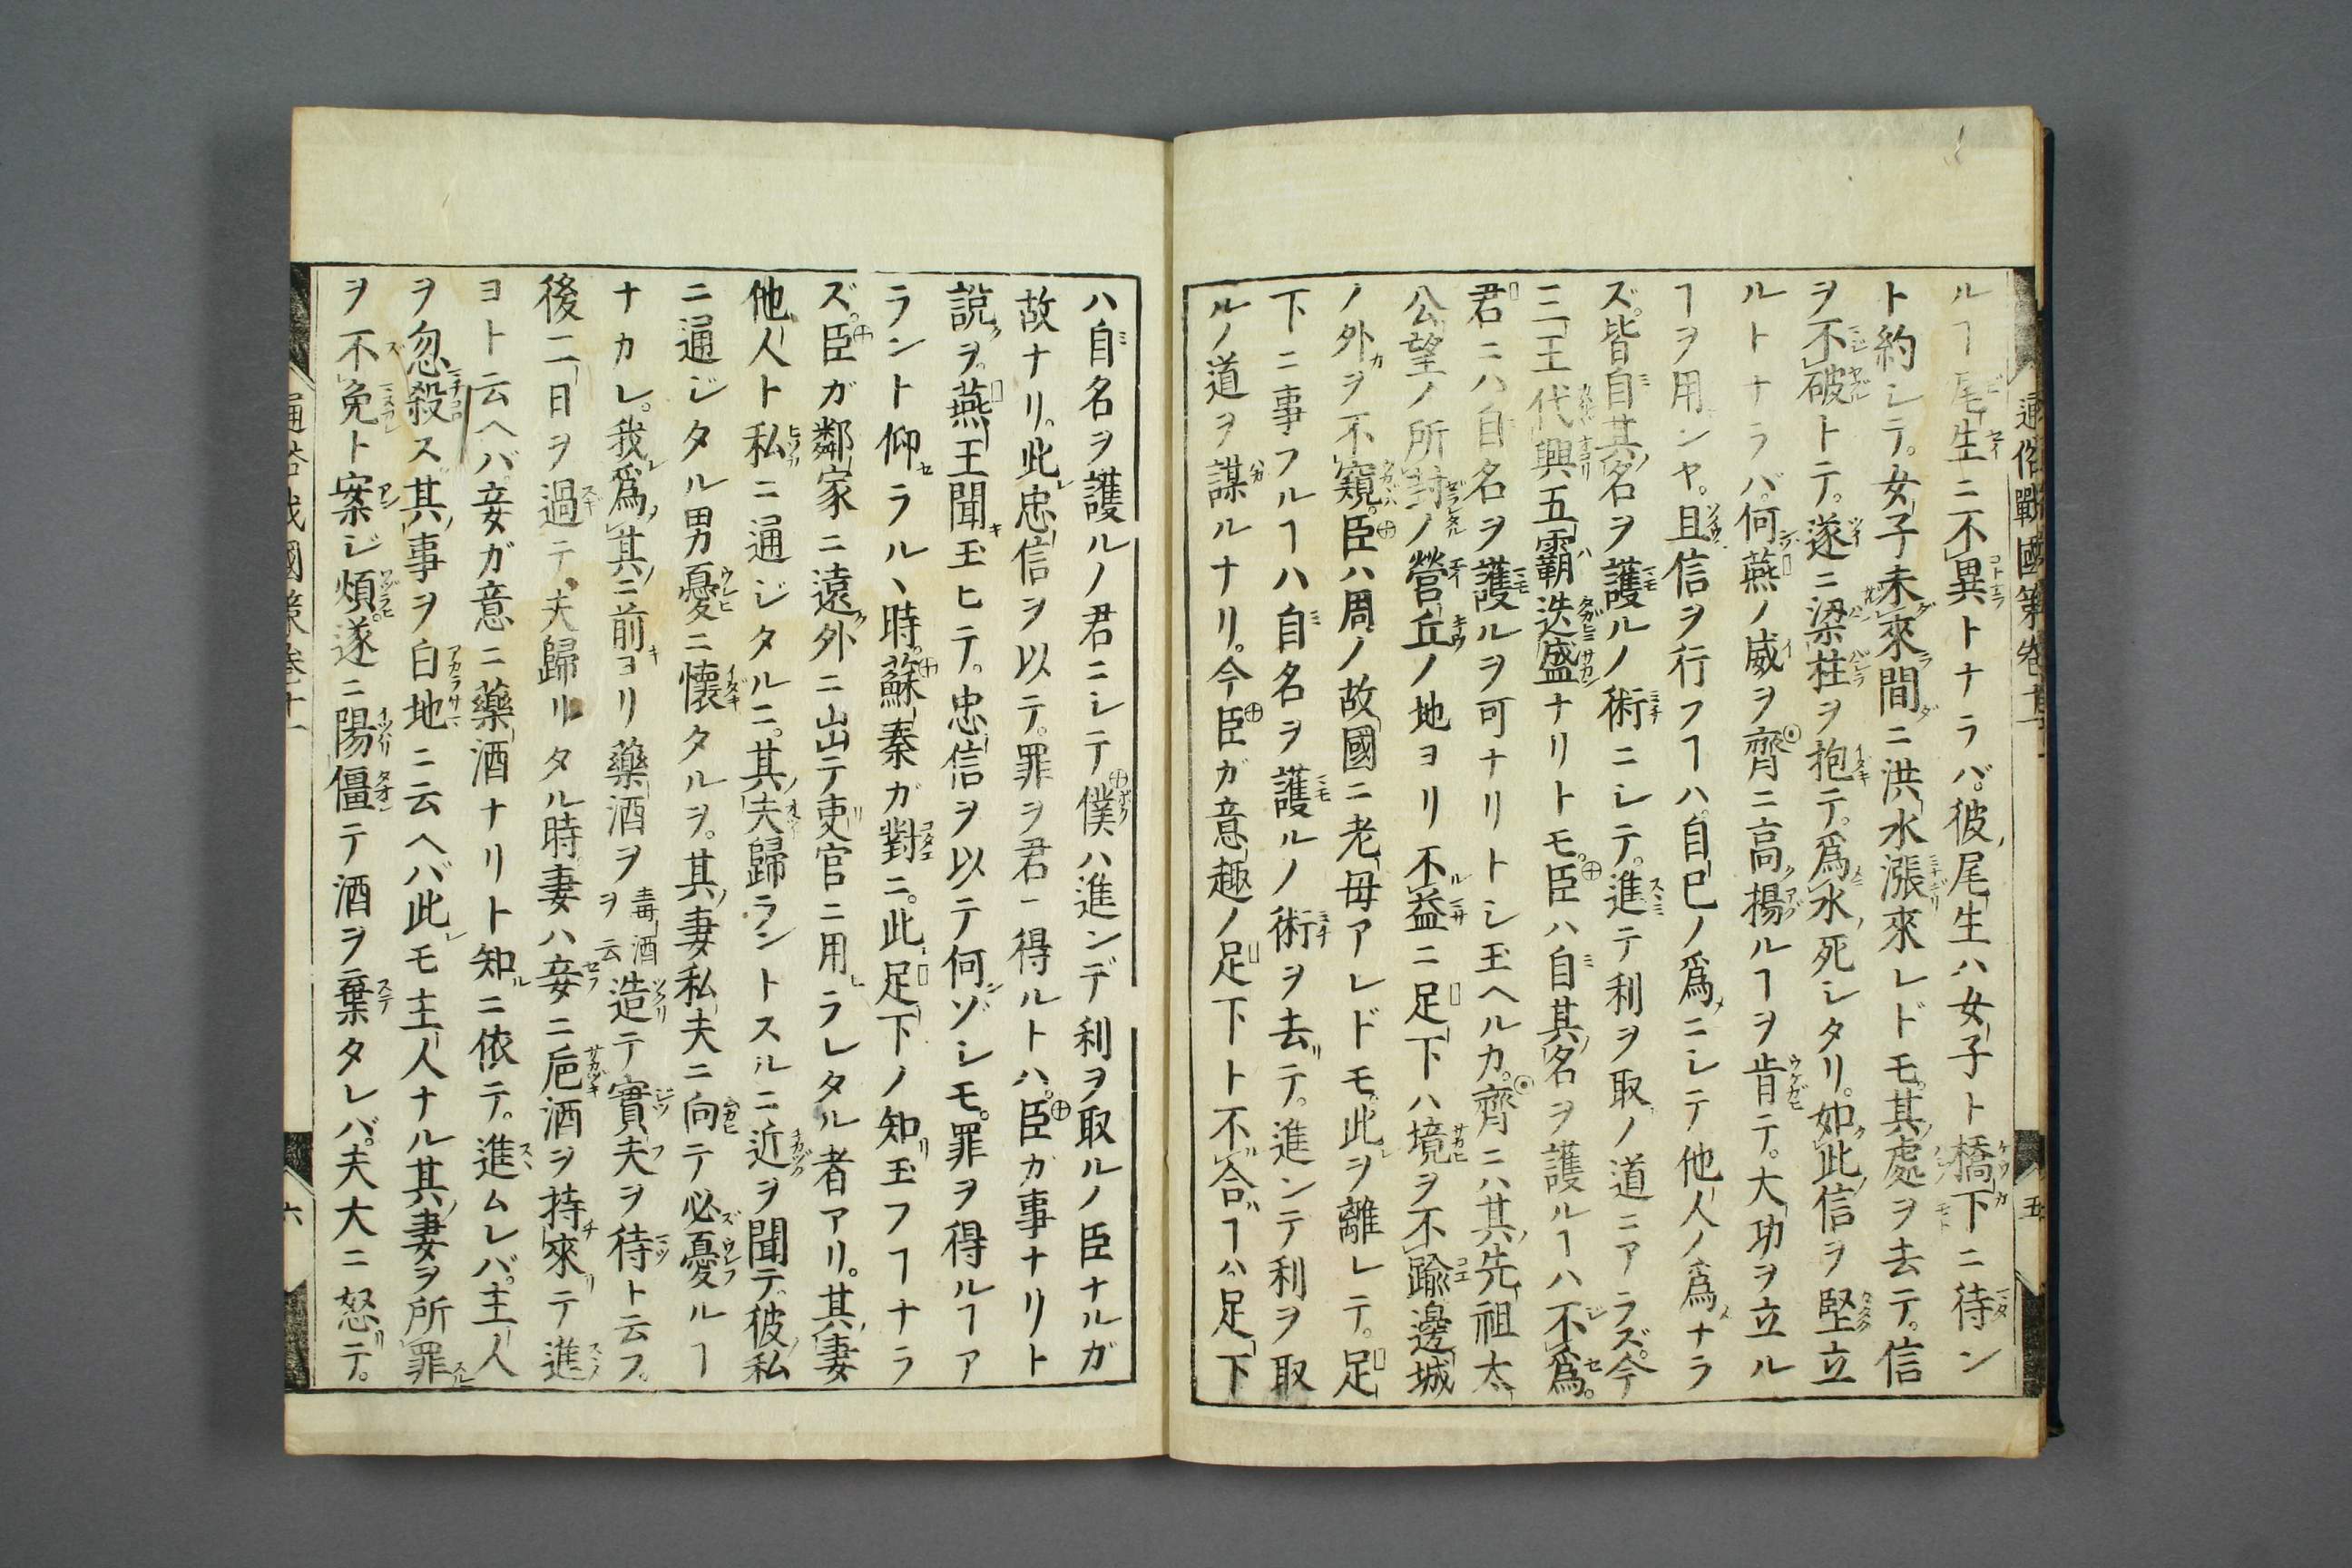 通俗戰國策卷十一
五
ルヿ尾生ニ不異トナラバ。彼尾生ハ女子ト橋下ニ待ン
ト約シテ。女子未來間ニ洪水漲來レドモ。其處ヲ去テ。信
ヲ不破トテ。遂ニ梁柱ヲ抱テ。爲水死シタリ。如此信ヲ堅立
ルトナラバ。何燕ノ威ヲ齊ニ高揚ルヿヲ肯テ。大功ヲ立ル
ヿヲ用ンヤ。且信ヲ行フヿハ。自己ノ爲ニシテ他人ノ爲ナラ
ズ。皆自其名ヲ護ルノ術ニシテ。進テ利ヲ取ノ道ニアラズ。今
三王代興五霸迭盛ナリトモ。臣ハ自其名ヲ護ルヿハ不爲。
君ニハ自名ヲ護ルヲ可ナリトシ玉ヘルカ。齊ニハ其先祖太
公望ノ所封ノ營丘ノ地ヨリ不益ニ足下ハ境ヲ不踰邊城
ノ外ヲ不窺。臣ハ周ノ故國ニ老母アレドモ。此ヲ離レテ。足
下ニ事フルヿハ自名ヲ護ルノ術ヲ去テ。進ンテ利ヲ取
ルノ道ヲ謀ルナリ。今臣ガ意趣ノ足下ト不合ヿハ足下
ハ自名ヲ護ルノ君ニシテ僕ハ進ンデ利ヲ取ルノ臣ナルガ
故ナリ。此忠信ヲ以テ。罪ヲ君ニ得ルトハ。臣ガ事ナリト
說ヲ。燕王聞玉ヒテ。忠信ヲ以テ何ゾシモ。罪ヲ得ルヿア
ラント仰ラルヽ時。蘇秦ガ對ニ。此足下ノ知玉フヿナラ
ズ。臣ガ鄰家ニ遠外ニ出テ吏官ニ用ラレタル者アリ。其妻
他人ト私ニ通ジタルニ。其夫歸ラントスルニ近ヲ聞テ。彼私
ニ通ジタル男憂ニ懷タルヲ。其妻私夫ニ向テ必憂ルヿ
ナカレ。我爲其ニ前ヨリ藥酒ヲ毒酒ヲ云造テ實夫ヲ待ト云フ。
後二日ヲ過テ、夫歸リタル時。妻ハ妾ニ巵酒ヲ持來テ進
ヨト云ヘバ。妾ガ意ニ藥酒ナリト知ニ依テ。進ムレバ。主人
ヲ忽殺ス。其事ヲ白地ニ云ヘバ此モ主人ナル其妻ヲ所罪
ヲ不免ト案ジ煩。遂ニ陽僵テ酒ヲ棄タレバ。夫大ニ怒テ。
六